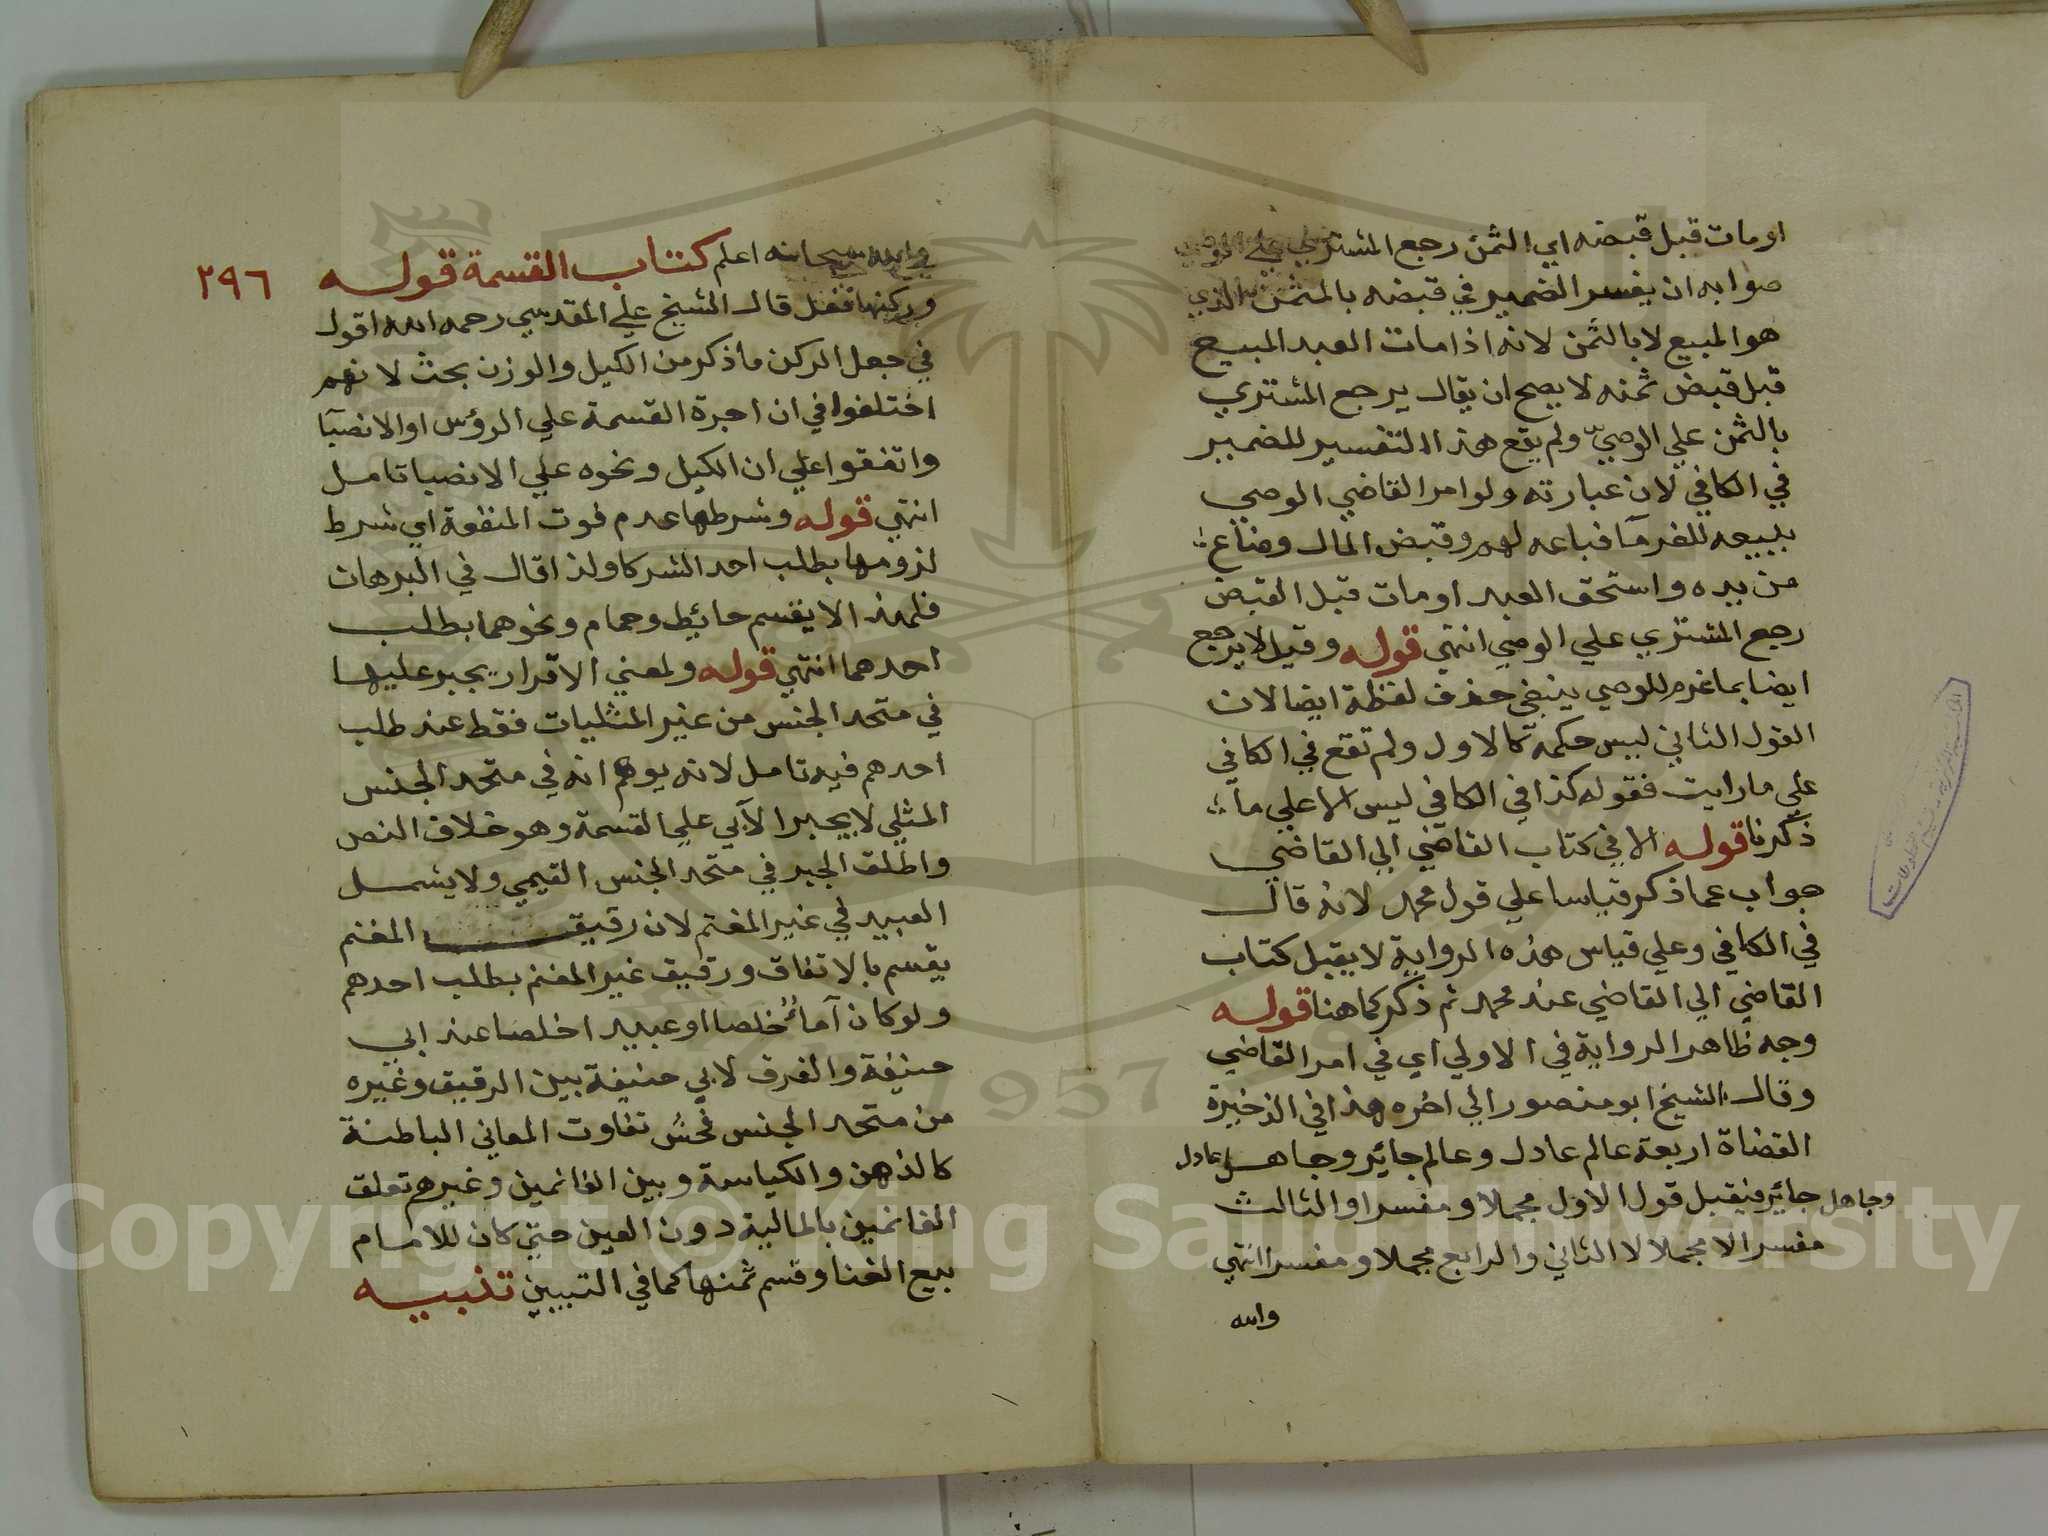 او مات قبل قبضه اي الثمن رجع المشتري علي الوصي
صوابه ان يفسر الضمير في قبضه بالمثمن الذي
هو المبيع لا بالثمن لانه اذا مات العبد المبيع
قبل قبض ثمنه لا يصح ان يقال يرجع المشتري
بالثمن علي الوصي ولم يقع هذا التفسير للضمير
في الكافي لان عبارته ولو امر القاضي الوصي
ببيعه للغرمآ فباعه لهم وقبض المال وضاع
من يده واستحق العبد او مات قبل القبض
رجع المشتري علي الوصي انتهي قوله وقيل لا يرجع
ايضا بما غرم للوصي ينبغي حذف لفظة ايضا لان
القول الثاني ليس حكمه كالاول ولم تقع في الكافي
علي ما رايت فقوله كذا في الكافي ليس الا علي ما
ذكرنا قوله الا في كتاب القاضي الي القاضي
جواب عما ذكر قياسا علي قول محمد لانه قال
في الكافي وعلي قياس هذه الرواية لا يقبل كتاب
القاضي الي القاضي عند محمد ثم ذكر كما هنا قوله
وجه ظاهر الرواية في الاولي اي في امر القاضي
وقال الشيخ ابو منصور الي اخره هذا في الذخيرة
القضاة اربعة عالم عادل وعالم جائر وجاهل عادل
وجاهل جائر فيقبل قول الاول مجملا ومفسرا والثالث
مفسرا لا مجملا لا الثاني والرابع مجملا ومفسرا انتهي
والله
والله سبحانه اعلم كتاب القسمة قوله
٢٩٦
وركنها فعل قال الشيخ علي المقدسي رحمه الله اقول
في جعل الركن ما ذكر من الكيل والوزن بحث لانهم
اختلفوا في ان اجرة القسمة علي الرؤس او الانصبآ
واتفقوا علي ان الكيل ونحوه علي الانصبا تامل
انتهي قوله وشرطها عدم فوت المنفعة اي شرط
لزومها بطلب احد الشركا ولذا قال في البرهان
فلهذا لا يقسم حائط وحمام ونحوهما بطلب
احدهما انتهي قوله ولمعني الاقرار يجبر عليها
في متحد الجنس من غير المثليات فقط عند طلب
احدهم فيه تامل لانه يوهم انه في متحد الجنس
المثلي لا يجبر الآبي علي القسمة وهو خلاف النص
واطلق الجبر في متحد الجنس القيمي ولا يشمل
العبيد في غير المغنم لان رقيق المغنم
يقسم بالاتفاق ورقيق غير المغنم بطلب احدهم
ولو كان آماء خلصا او عبيدا خلصا عند ابي
حنيفة والفرق لابي حنيفة بين الرقيق وغيره
من متحد الجنس فحش تفاوت المعاني الباطنة
كالذهن والكياسة وبين الغانمين وغيرهم تعلق
الغانمين بالمالية دون العين حتي كان للامام
بيع الغنا وقسم ثمنها كما في التبيين تنبيه
Copyright © King Saud University
1957